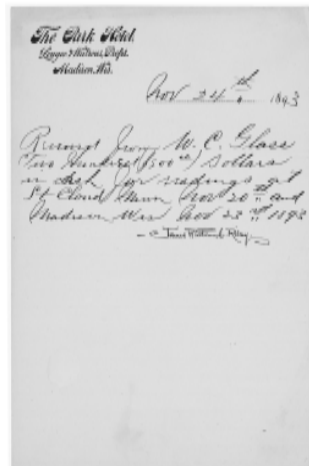 The Park Hotel.
Madison, Wis.
Nov 24th 1893
Received from W. C. Glass
Two Hundred (200 00) Dollars
in cash for readings at
St Cloud Minn Nov 20th and
Madison Wis Nov 23rd 1893
James Whitcomb Riley